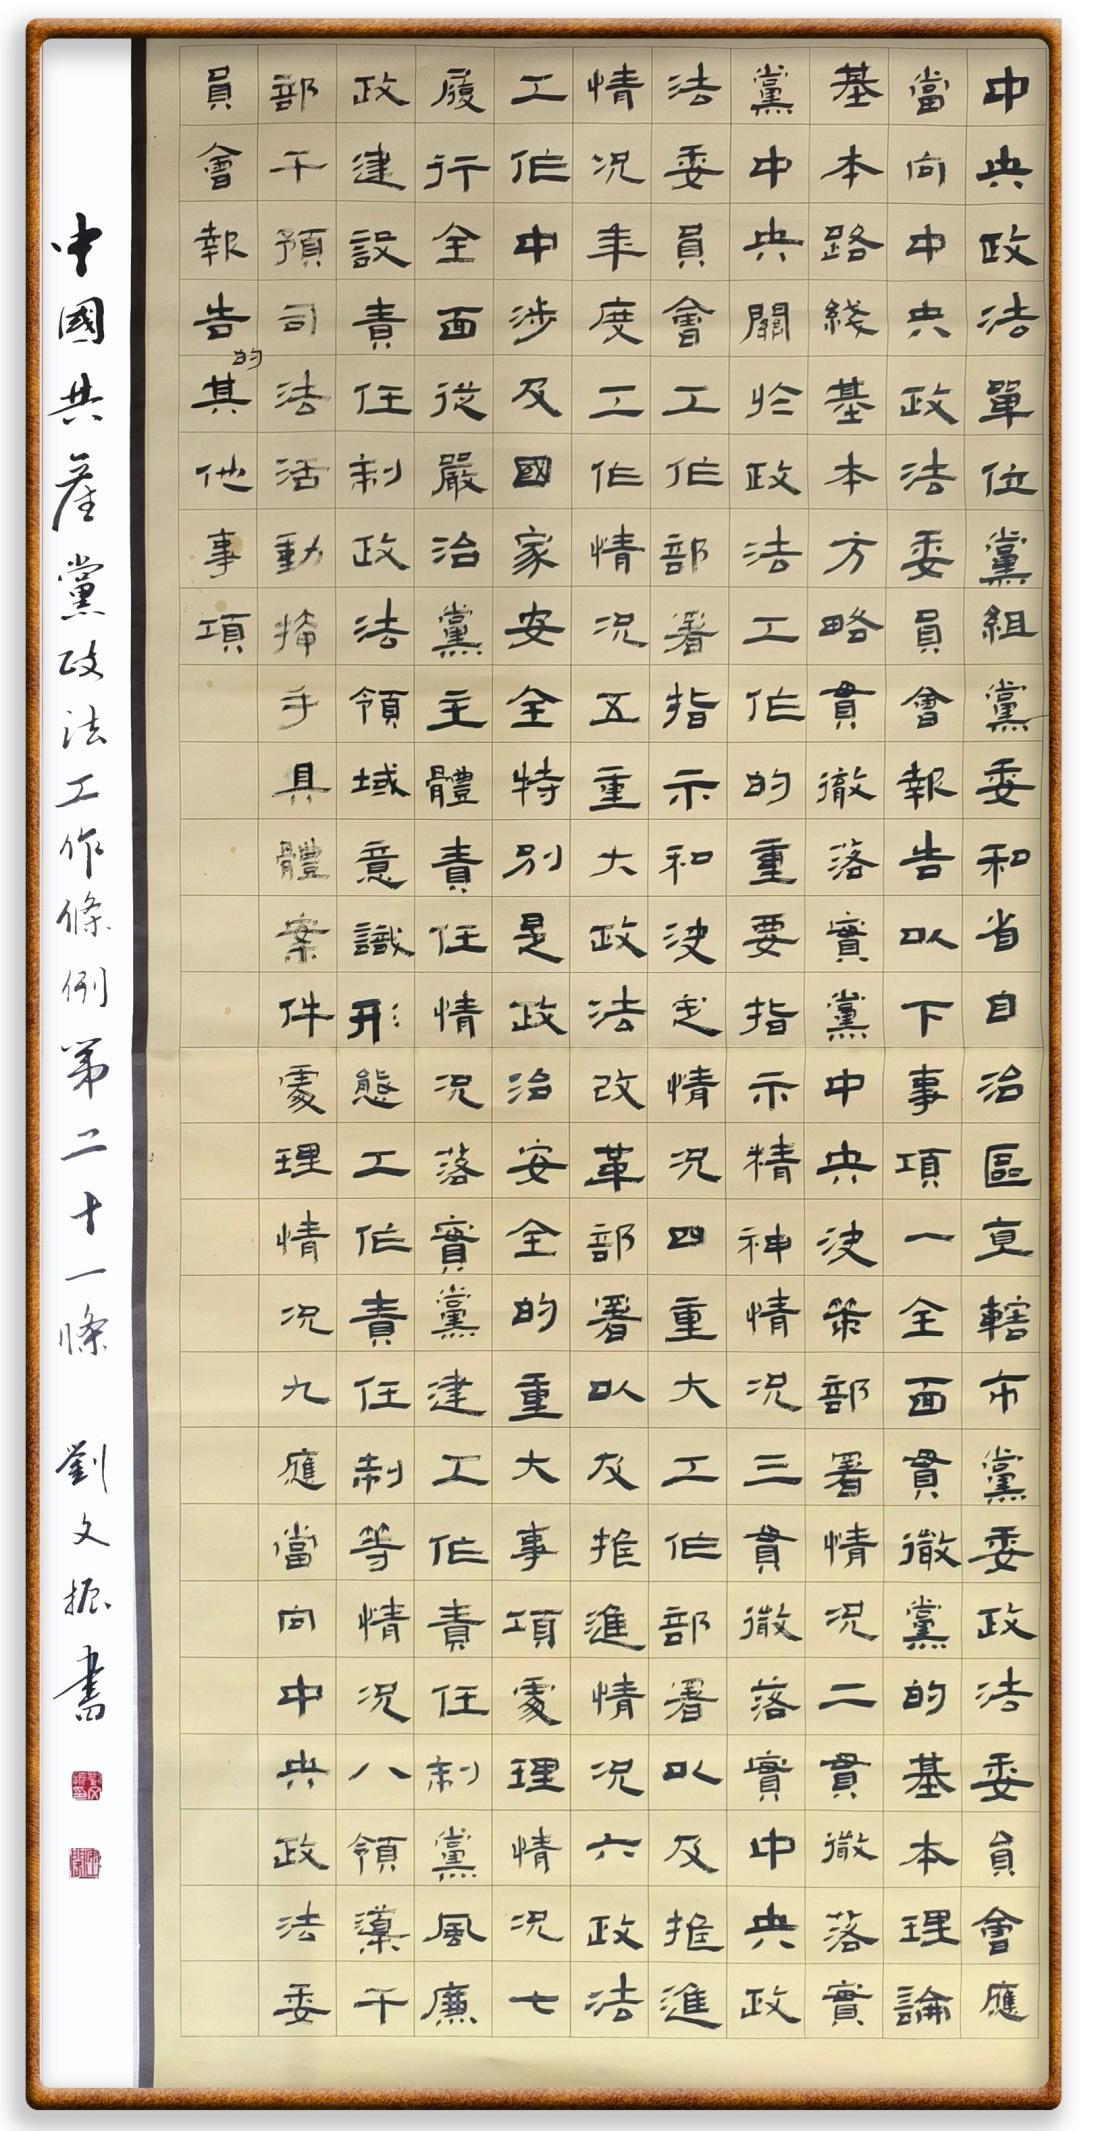 中央政法單位黨組黨委和省自治區直轄市黨委政法委員會應
當向中央政法委員會報告以下事項一全面貫徹黨的基本理論
基本路綫基本方略貫徹落實黨中央決策部署情况二貫徹落實
黨中央關於政法工作的重要指示精神情况三貫徹落實中央政
法委員會工作部署指示和決定情况四重大工作部署以及推進
情况年度工作情况五重大政法改革部署以及推進情况六政法
工作中涉及國家安全特別是政治安全的重大事項處理情况七
履行全面從嚴治黨主體責任情况落實黨建工作責任制黨風廉
政建設責任制政法領域意識形態工作責任制等情况八領導干
部干預司法活動插手具體案件處理情况九應當向中央政法委
員會報告的其他事項
中國共產黨政法工作條例第二十一條 劉文振書